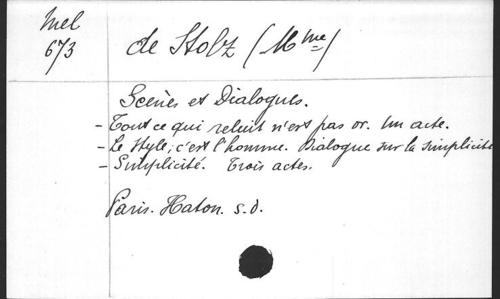 Mel
673
de Stolz (Mme)
Scènes et Dialogues.
- Tout ce qui reluit n'est pas or. Un acte.
- Le Style, c'est l'homme. Dialogue sur la simplicité
- Simplicité. Trois actes.
Paris. Haton. s.d.